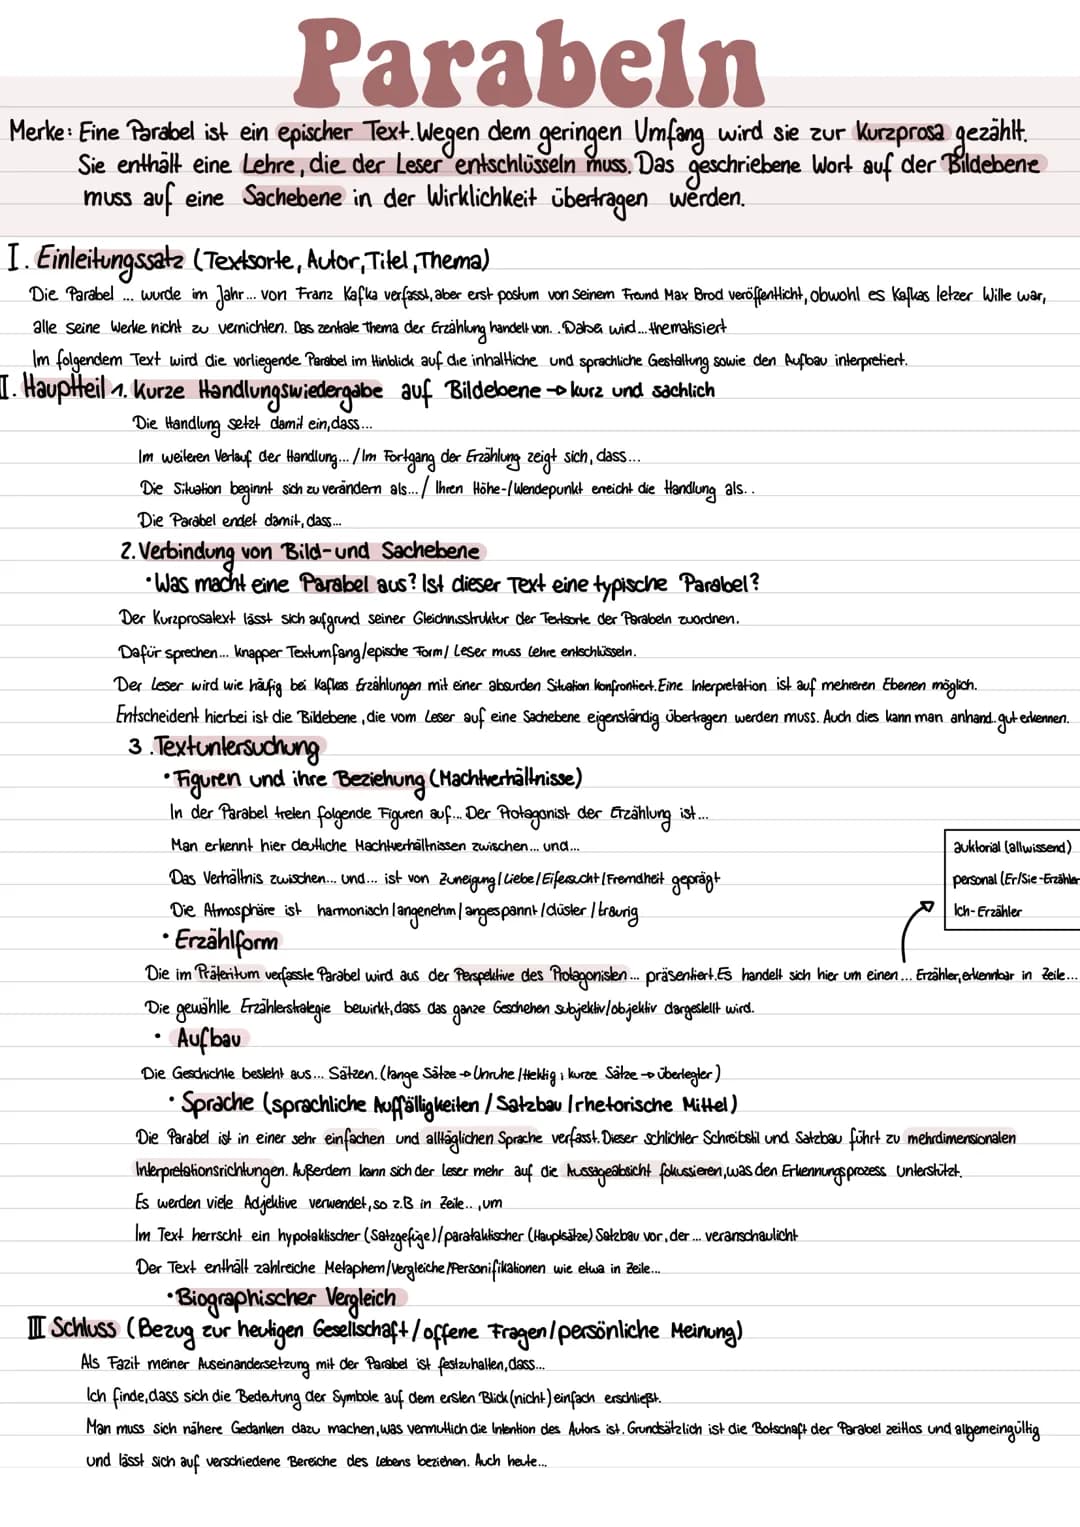 Parabeln
Merke: Eine Parabel ist ein epischer Text. Wegen dem geringen Umfang wird sie zur Kurzprosa gezählt.
Sie enthält eine Lehre, die der Leser entschlüsseln muss. Das geschriebene Wort auf der Bildebene
muss auf eine Sachebene in der Wirklichkeit übertragen werden.
I. Einleitungssatz (Textsorte, Autor, Titel, Thema)
Die Parabel ... wurde im Jahr... von Franz Kafka verfasst, aber erst postum von seinem Freund Max Brod veröffentlicht, obwohl es Kafkas letzer Wille war,
alle seine Werke nicht zu vernichten. Das zentrale Thema der Erzählung handelt von. . Dabei wird... thematisiert
Im folgendem Text wird die vorliegende Parabel im Hinblick auf die inhaltliche und sprachliche Gestaltung sowie den Aufbau interpretiert.
II. Hauptteil 1. Kurze Handlungswiedergabe auf Bildebene → kurz und sachlich
Die Handlung setzt damit ein, dass...
Im weiteren Verlauf der Handlung... / Im Fortgang der Erzählung zeigt sich, dass...
Die Situation beginnt sich zu verändern als... / Ihren Höhe-/Wendepunkt erreicht die Handlung als. .
Die Parabel endet damit, dass...
2. Verbindung von Bild- und Sachebene
• Was macht eine Parabel aus? Ist dieser Text eine typische Parabel?
Der Kurzprosatext lässt sich aufgrund seiner Gleichnisstruktur der Textsorte der Parabeln zuordnen.
Dafür sprechen... knapper Textumfang/epische Form/ Leser muss Lehre entschlüsseln.
Der Leser wird wie häufig bei Kafkas Erzählungen mit einer absurden Situation konfrontiert. Eine Interpretation ist auf mehreren Ebenen möglich.
Entscheident hierbei ist die Bildebene, die vom Leser auf eine Sachebene eigenständig übertragen werden muss. Auch dies kann man anhand.. gut erkennen.
3. Textuntersuchung
• Figuren und ihre Beziehung (Machtverhältnisse)
In der Parabel treten folgende Figuren auf... Der Protagonist der Erzählung ist...
Man erkennt hier deutliche Machtverhältnissen zwischen... und...
auktorial (allwissend)
Das Verhältnis zwischen... und... ist von Zuneigung/Liebe/Eifersucht/Fremdheit geprägt
personal (Er/Sie-Erzähler
Die Atmosphäre ist harmonisch/angenehm/angespannt/düster/traurig
Ich-Erzähler
• Erzählform
Die im Präteritum verfasste Parabel wird aus der Perspektive des Protagonisten... präsentiert. Es handelt sich hier um einen... Erzähler, erkennbar in Zeile...
Die gewählte Erzählerstrategie bewirkt, dass das ganze Geschehen subjektiv/objektiv dargestellt wird.
• Aufbau
Die Geschichte besteht aus... Sätzen. (lange Sätze → Unruhe/Hektig; kurze Sätze → überlegter)
• Sprache (sprachliche Auffälligkeiten / Satzbau / rhetorische Mittel)
Die Parabel ist in einer sehr einfachen und alltäglichen Sprache verfasst. Dieser schlichter Schreibstil und Satzbau führt zu mehrdimensionalen
Interpretationsrichtungen. Außerdem kann sich der Leser mehr auf die Aussageabsicht fokussieren, was den Erkennungsprozess unterstützt.
Es werden viele Adjektive verwendet, so z.B in Zeile.. , um
Im Text herrscht ein hypotaktischer (Satzgefüge)/parataktischer (Hauptsätze) Satzbau vor, der ... veranschaulicht
Der Text enthält zahlreiche Metaphern/Vergleiche/Personifikationen wie etwa in Zeile...
• Biographischer Vergleich
III Schluss (Bezug zur heutigen Gesellschaft/offene Fragen/persönliche Meinung)
Als Fazit meiner Auseinandersetzung mit der Parabel ist festzuhalten, dass...
Ich finde, dass sich die Bedeutung der Symbole auf dem ersten Blick (nicht) einfach erschließt.
Man muss sich nähere Gedanken dazu machen, was vermutlich die Intention des Autors ist. Grundsätzlich ist die Botschaft der Parabel zeitlos und allgemeingültig
und lässt sich auf verschiedene Bereiche des Lebens beziehen. Auch heute...